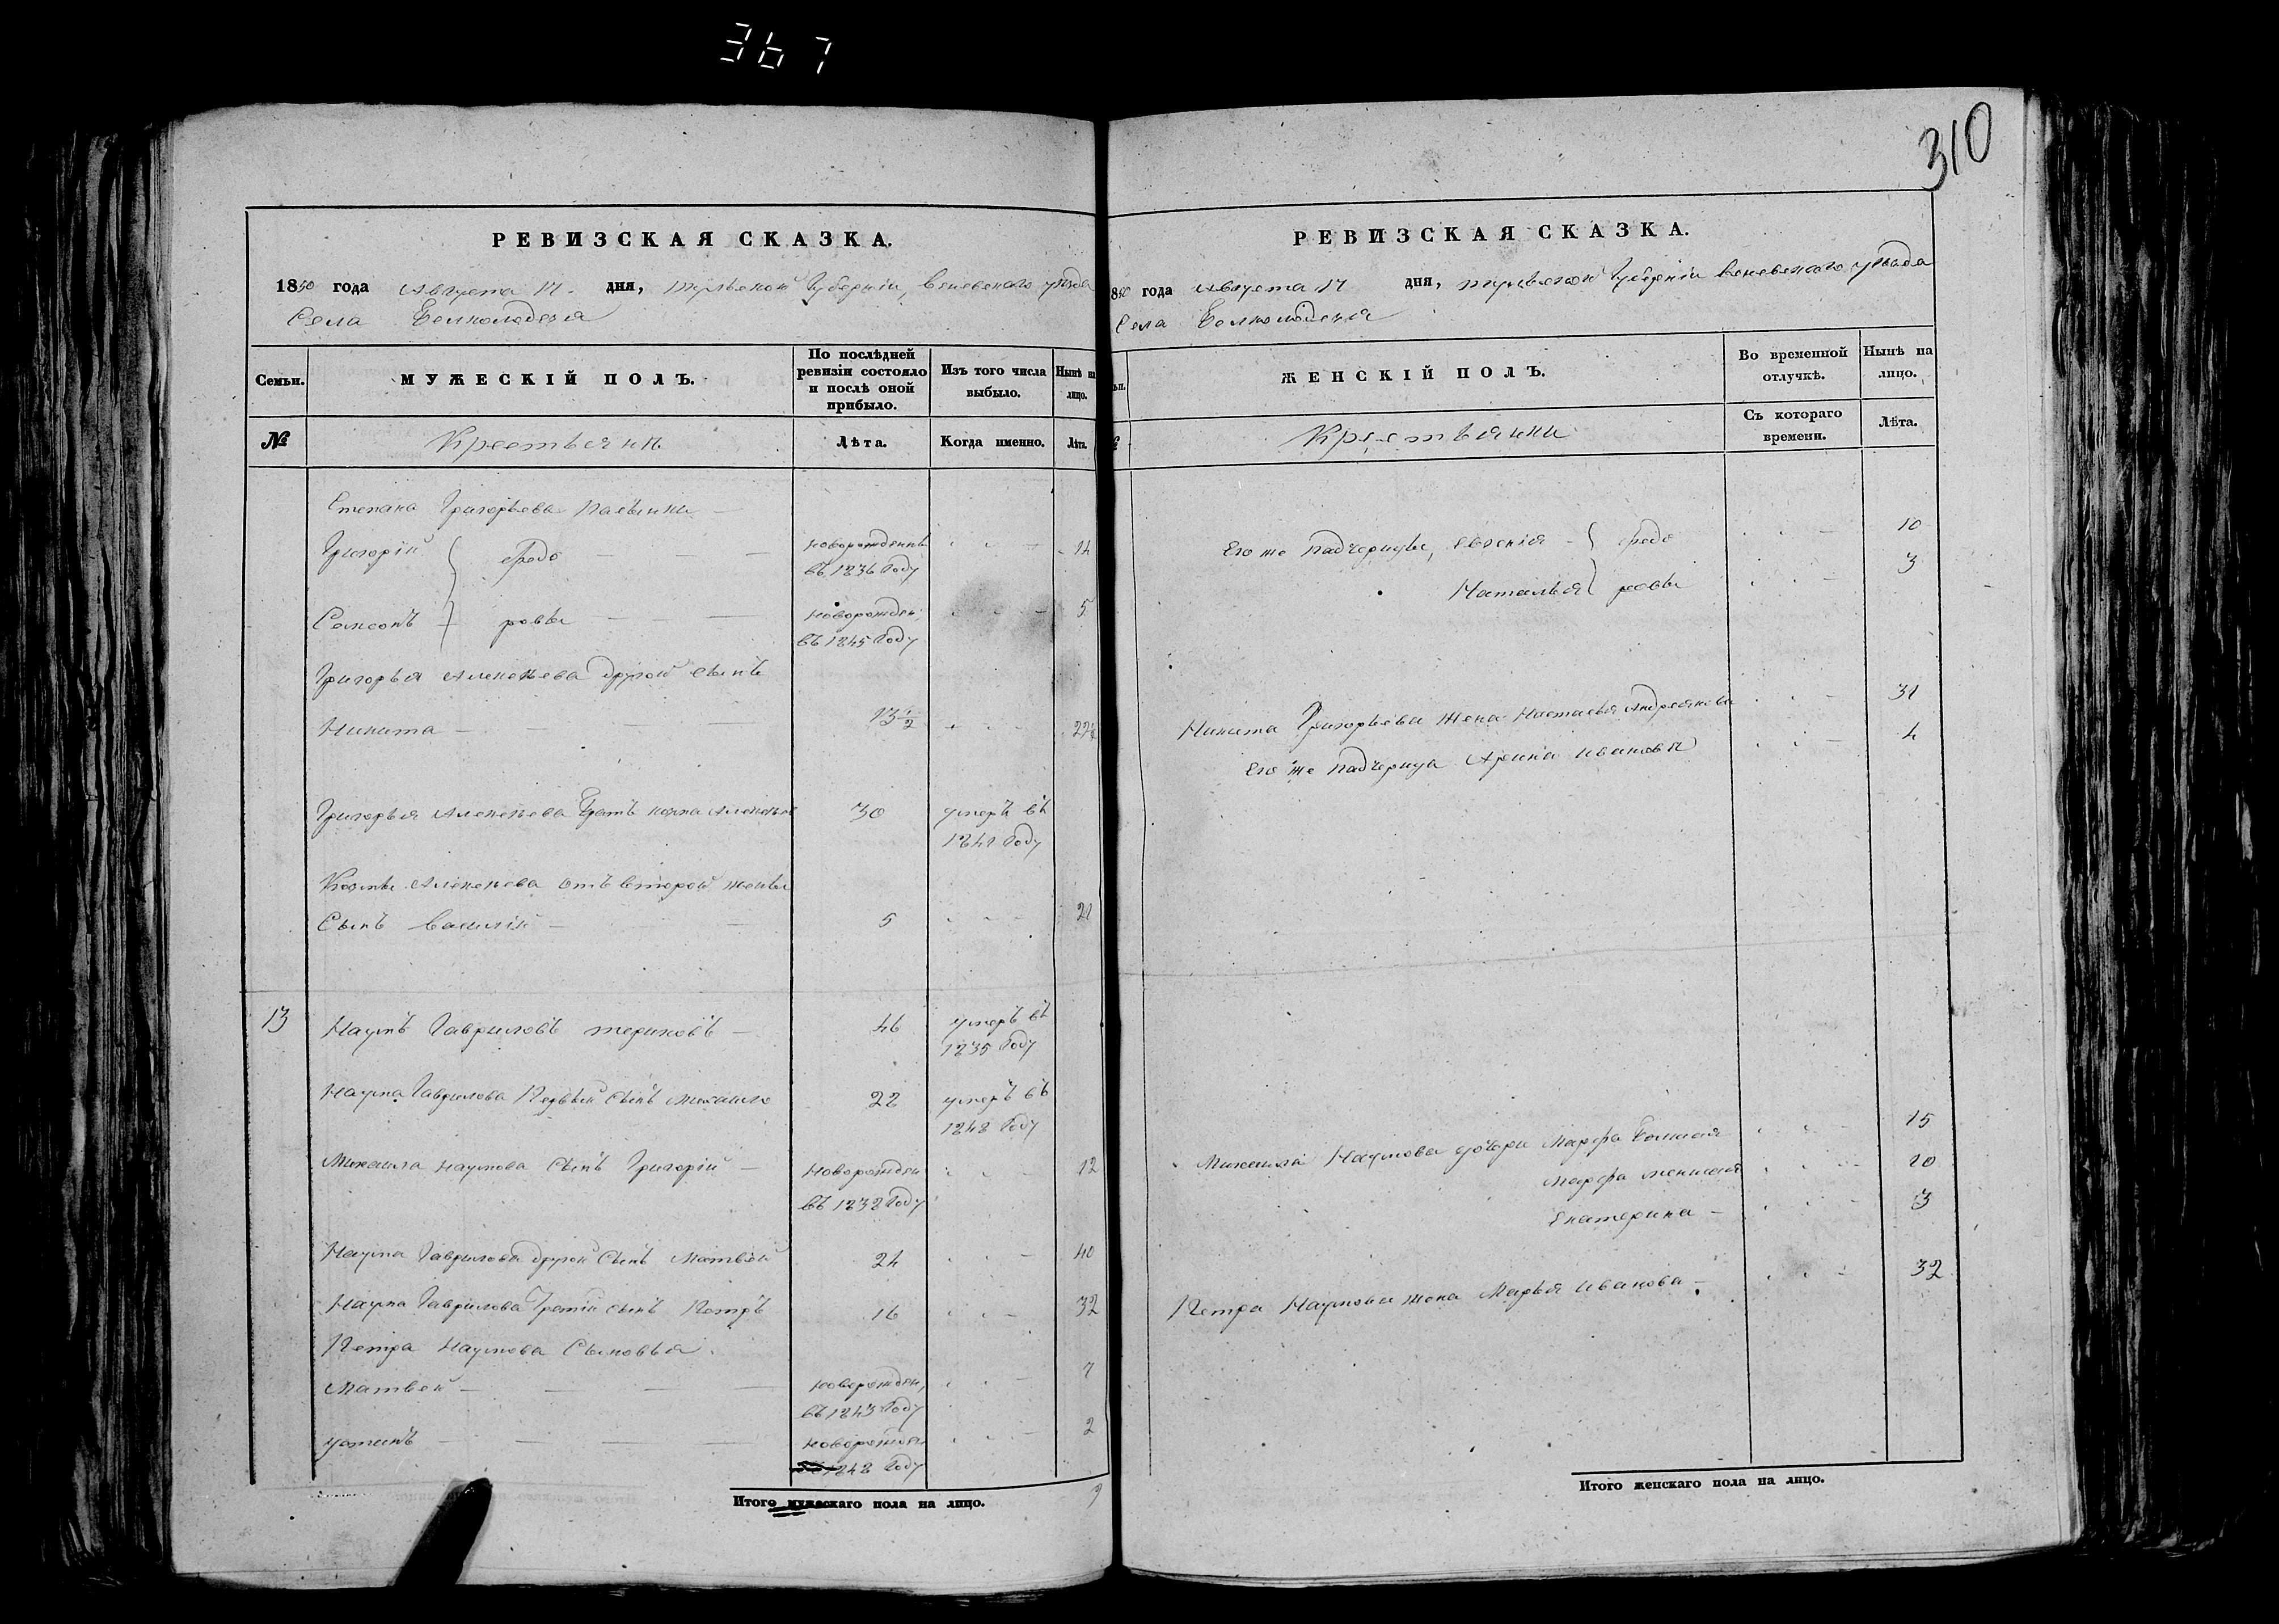 367
310
РЕВИЗСКАЯ СКАЗКА.
1850 года Августа 17 дня, Тульской Губерніи, Веневскаго уѣзда
Села Белколодезя
Семьи.
МУЖЕСКІЙ ПОЛЪ.
По послѣдней ревизіи состояло и послѣ оной прибыло.
Изъ того числа выбыло.
Нынѣ на лицо.
№
Крестьяни
Лѣта.
Когда именно.
Лѣта.
Степана Григорьева пасынки
Григорій сведе новорожденны 14
въ 1836 Году
Самсонъ ровы новорожден 5
въ 1845 Году
Григорья Алексѣева другой сынъ
Никита 13 1/2
Григорья Алексѣева братъ 30 умеръ въ
1841 Году
Козмы Алексѣева отъ второй жены
Сынъ Василій 5 21
13 Наумъ Гавриловъ териховъ 46 умеръ въ
1835 Году
Наума Гаврилова Первый сынъ Михаила 22 умеръ въ
1848 Году
Михаила Наумова сынъ Григорій Новорожден 12
въ 1838 Году
Наума Гаврилова другой сынъ Матвѣй 24 40
Наума Гаврилова третій сынъ Петръ 16 32
Петра Наумова Сыновья
Матвей новорожден, 7
въ 1843 Году
устинъ новорожден 2
1848 Году
Итого мужескаго пола на лицо. 9
РЕВИЗСКАЯ СКАЗКА.
850 года Августа 17 дня, Тульской Губерніи Веневскаго уѣзда
Села Белколодезя
ЖЕНСКІЙ ПОЛЪ.
Во временной отлучкѣ.
Нынѣ на лицо.
Крестьянки
Съ котораго времени.
Лѣта.
Его же падчерицы, Евгенія сведе 10
Наталья ровы 3
Никита Григорьева жена Настасья Андреянова 31
Его же падчерица Арина Иванова 4
Михаила Наумова дочери Марфа большая 15
Марфа меншая 10
Екатерина 3
Петра Наумова жена Марья Иванова 32
Итого женскаго пола на лицо.